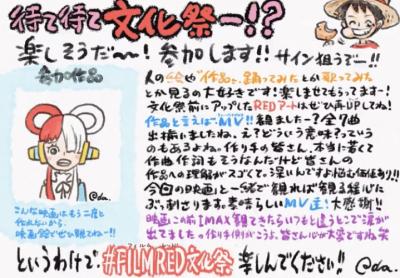 待て待て文化祭ー!?
楽しそうだ〜〜!参加します!!サイン狙うでー!!
参加作品
人の絵や作品を、踊ってみたとか歌ってみた
とか見るの大好きです!楽しませてもらってます!
文化祭前にアップしたREDアートはぜひ再UPしてね!
作品と言えばMV!!観ましたー?全7曲
出揃いましたね。え?どういう意味?っていう
のもあるよね。作り手の皆さん、本当に若くて
作曲作詞もそうなんだけど皆さんの
作品への理解がスゴくて。深いんですよ悩む価値あり!!
今回の映画と一緒で観れば観る程心に
ぶっ刺さります。素晴らしいMV達!大感謝!!
映画この前IMAX観てきたらいつもと違うとこで涙が
出てました。作り手側がこうよ。皆さん心が大変ですね笑
こんな映画はもう二度と
作れないから、
映画館でぜひ観てねー!!
@da.
というわけで#FILMRED文化祭 楽しんでください!!
@da.